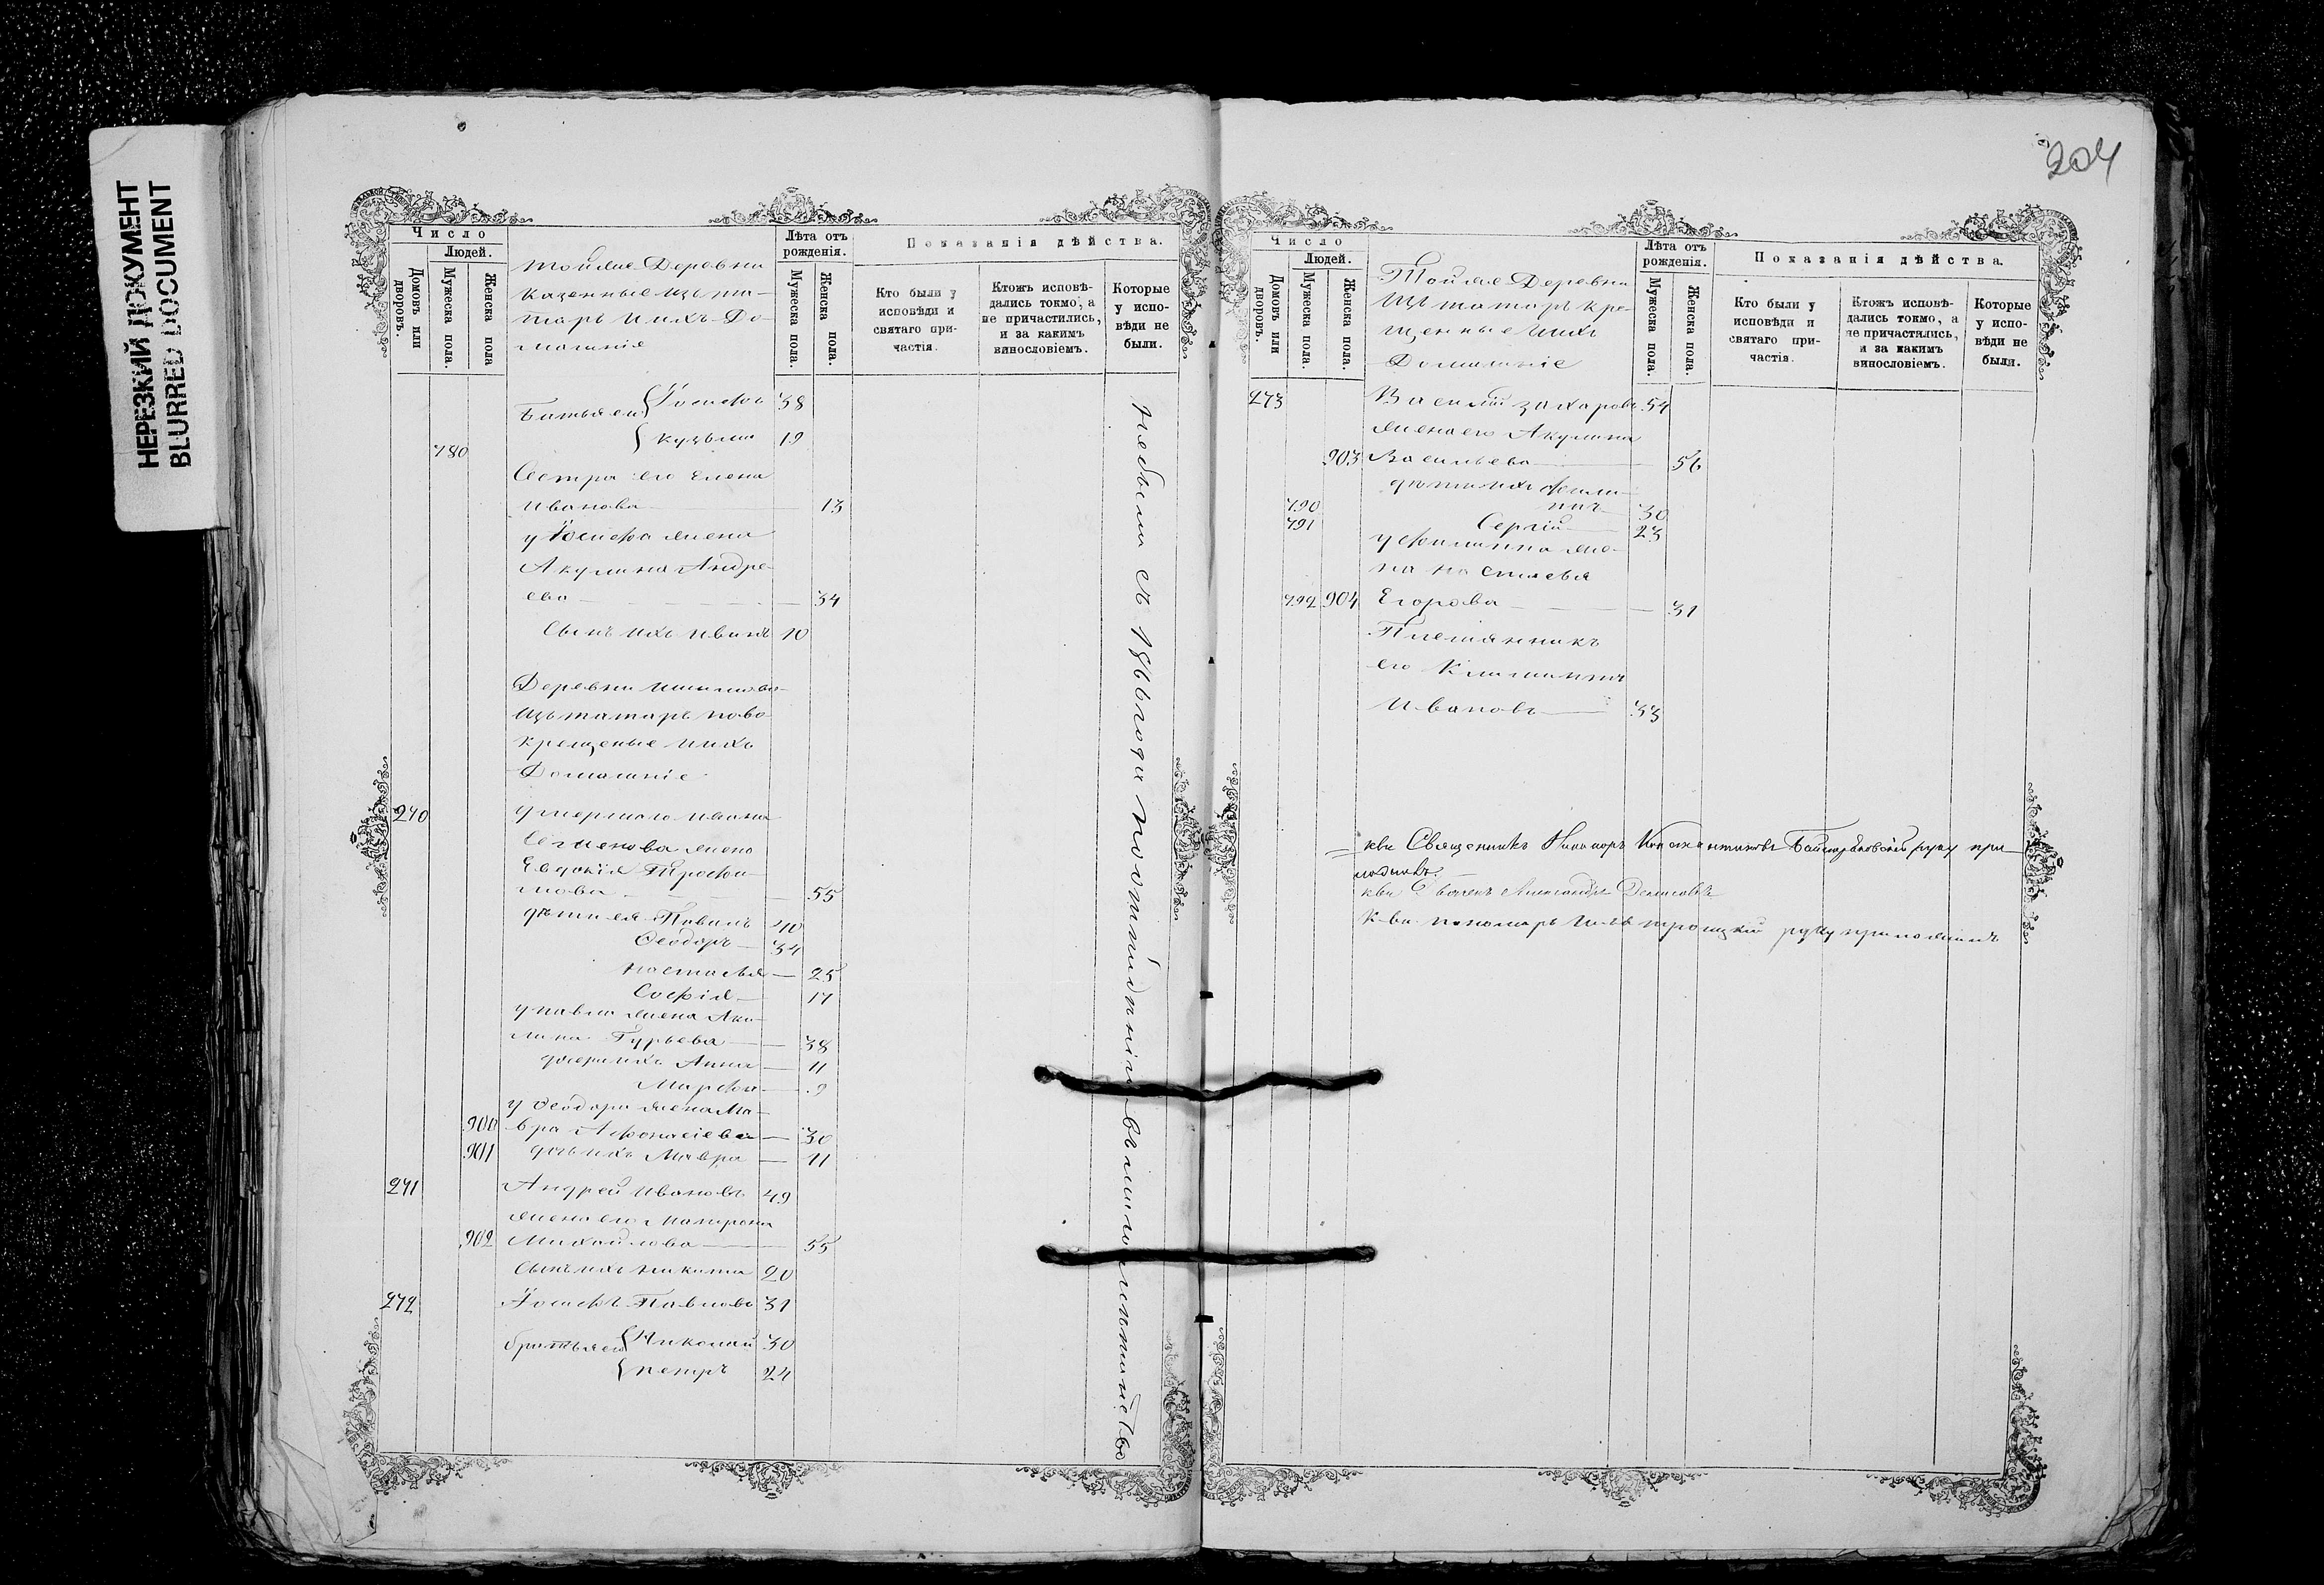 НЕРЕЗКИЙ ДОКУМЕНТ
BLURRED DOCUMENT
Число
Людей.
Домовъ или дворовъ.
Мужеска пола.
Женска пола
Тойже Деревни
казенные изъ та-
таръ и ихъ До
машнія
Лѣта отъ рожденія.
Мужеска пола.
Женска пола.
Показанія дѣйства.
Кто были у исповѣди и святаго причастія.
Ктожъ исповѣдались токмо, а не причастились, и за какимъ винословіемъ.
Которые у исповѣди не были.
Іосифъ 38
Кузьма 19
780
Сестра его Елена
Иванова 13
у Іосифа жена
Акулина Андре
ева 34
Сынъ ихъ Иванъ 10
Деревни
Изъ татаръ ново
крещеные и ихъ
Домашніе
270 умершаго Ивана
Семенова жена
Евдокія Трофи
мова 55
дѣти ея Павелъ 40
Ѳеодоръ 34
Настасья 25
Софія 17
у Павла жена Аку
лина Гурьева 38
дочери ихъ Анна 11
Марфа 9
у Ѳеодора жена Ма
900 вра Афонасіева 30
901 дочь ихъ Мавра 11
271 Андрей Ивановъ 49
жена его Матрона
902 Михайлова 55
Сынъ ихъ Никита 20
272 Іосифъ Павловъ 31
братья его Николай 30
Петръ 24
небыли съ
204
Число
Людей.
Домовъ или дворовъ.
Мужеска пола.
Женска пола.
Тойже Деревни
Изъ татаръ кре
щенные и ихъ
Домашніе
Лѣта отъ рожденія.
Мужеска пола.
Женска пола.
Показанія дѣйства.
Кто были у исповѣди и святаго причастія.
Ктожъ исповѣдались токмо, а не причастились, и за какимъ винословіемъ.
Которые у исповѣди не были.
273 Василій Захаровъ 54
жена его Акулина
903 Васильева 56
дѣти ихъ Фили
790 ппъ 30
791 Сергій 23
у Филиппа же
на Настасья
792 904 Егорова 31
Племянникъ
его
Ивановъ 33
къ сей Священникъ руку при
ложилъ.
Александръ
пономарь Троицкій руку приложилъ